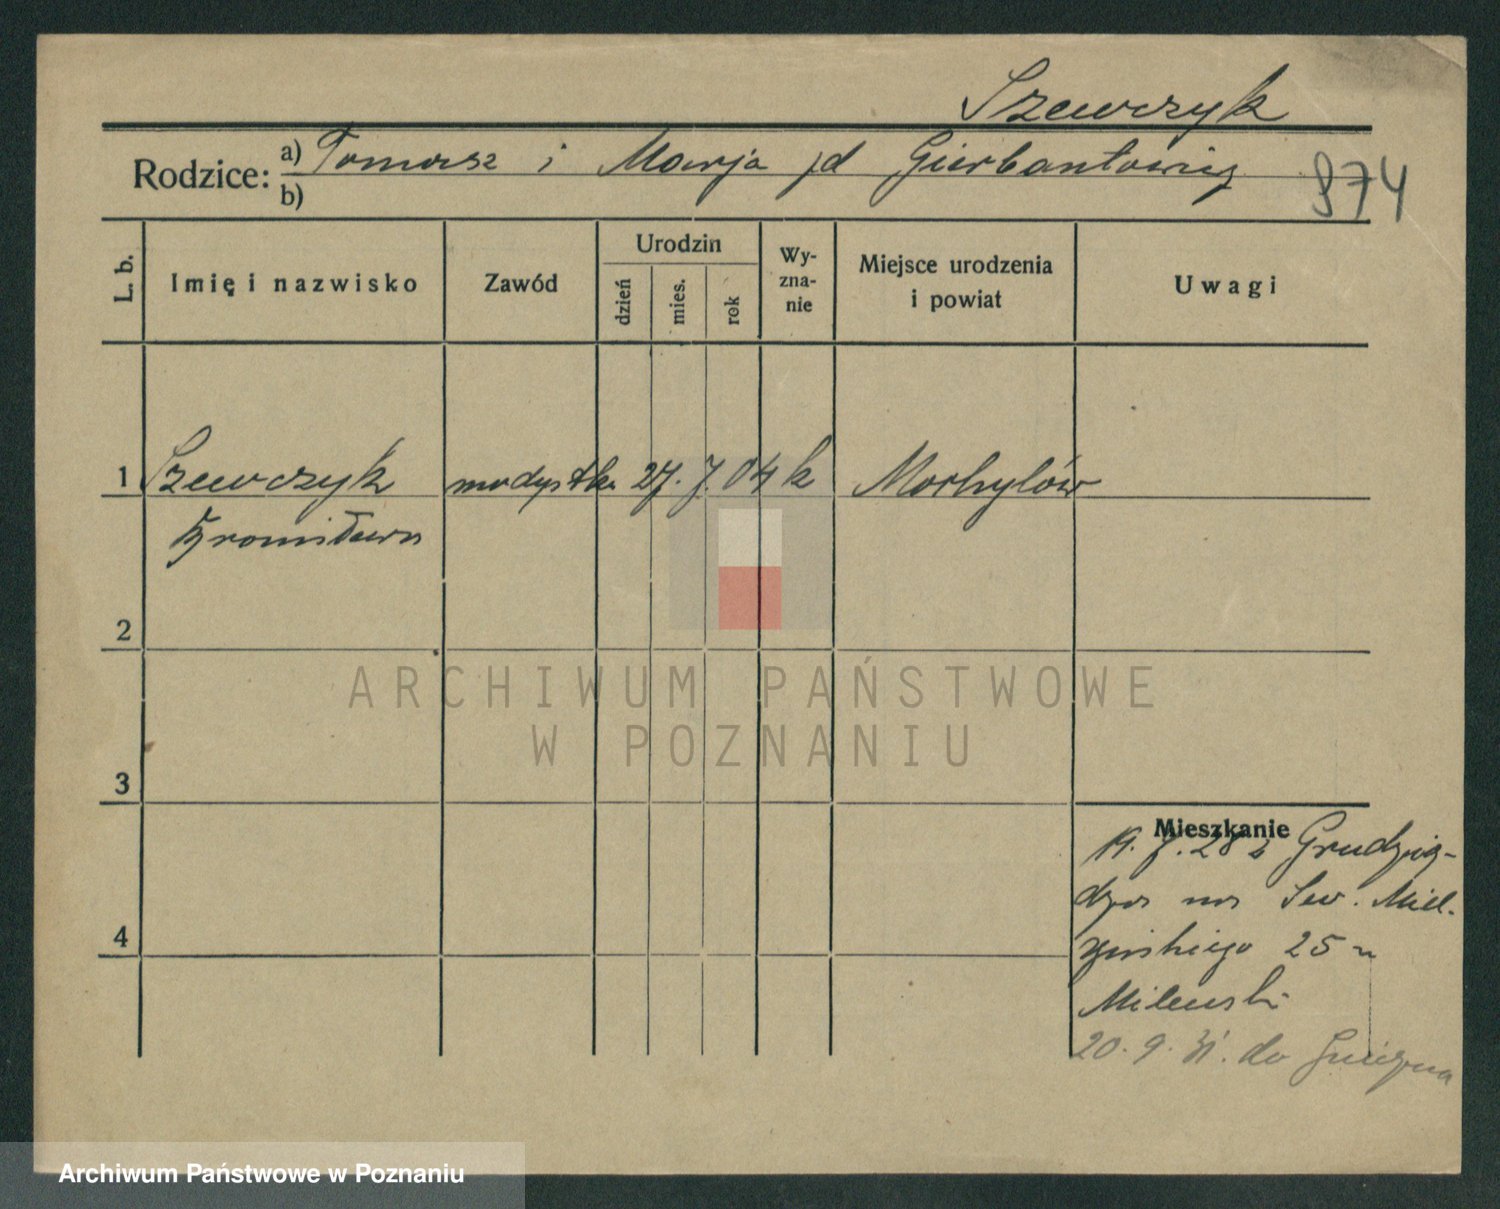 Szewczyk
Rodzice: a) Tomasz i Marja jd Gierbantowicz
b)
974
L. b.
Imię i nazwisko
Zawód
Urodzin
dzień
mies.
rok
Wy-
zna-
nie
Miejsce urodzenia
i powiat
Uwagi
1 Szewczyk modystka 27. 7. 04 k Mochylów
Bronisława
2
3
4
Mieszkanie
19. 7. 28 z Grudzią-
dza na Sew. Miel-
żyńskiego 25 u
Milewski
20. 9. 31. do Gniezna
ARCHIWUM PAŃSTWOWE
W POZNANIU
Archiwum Państwowe w Poznaniu